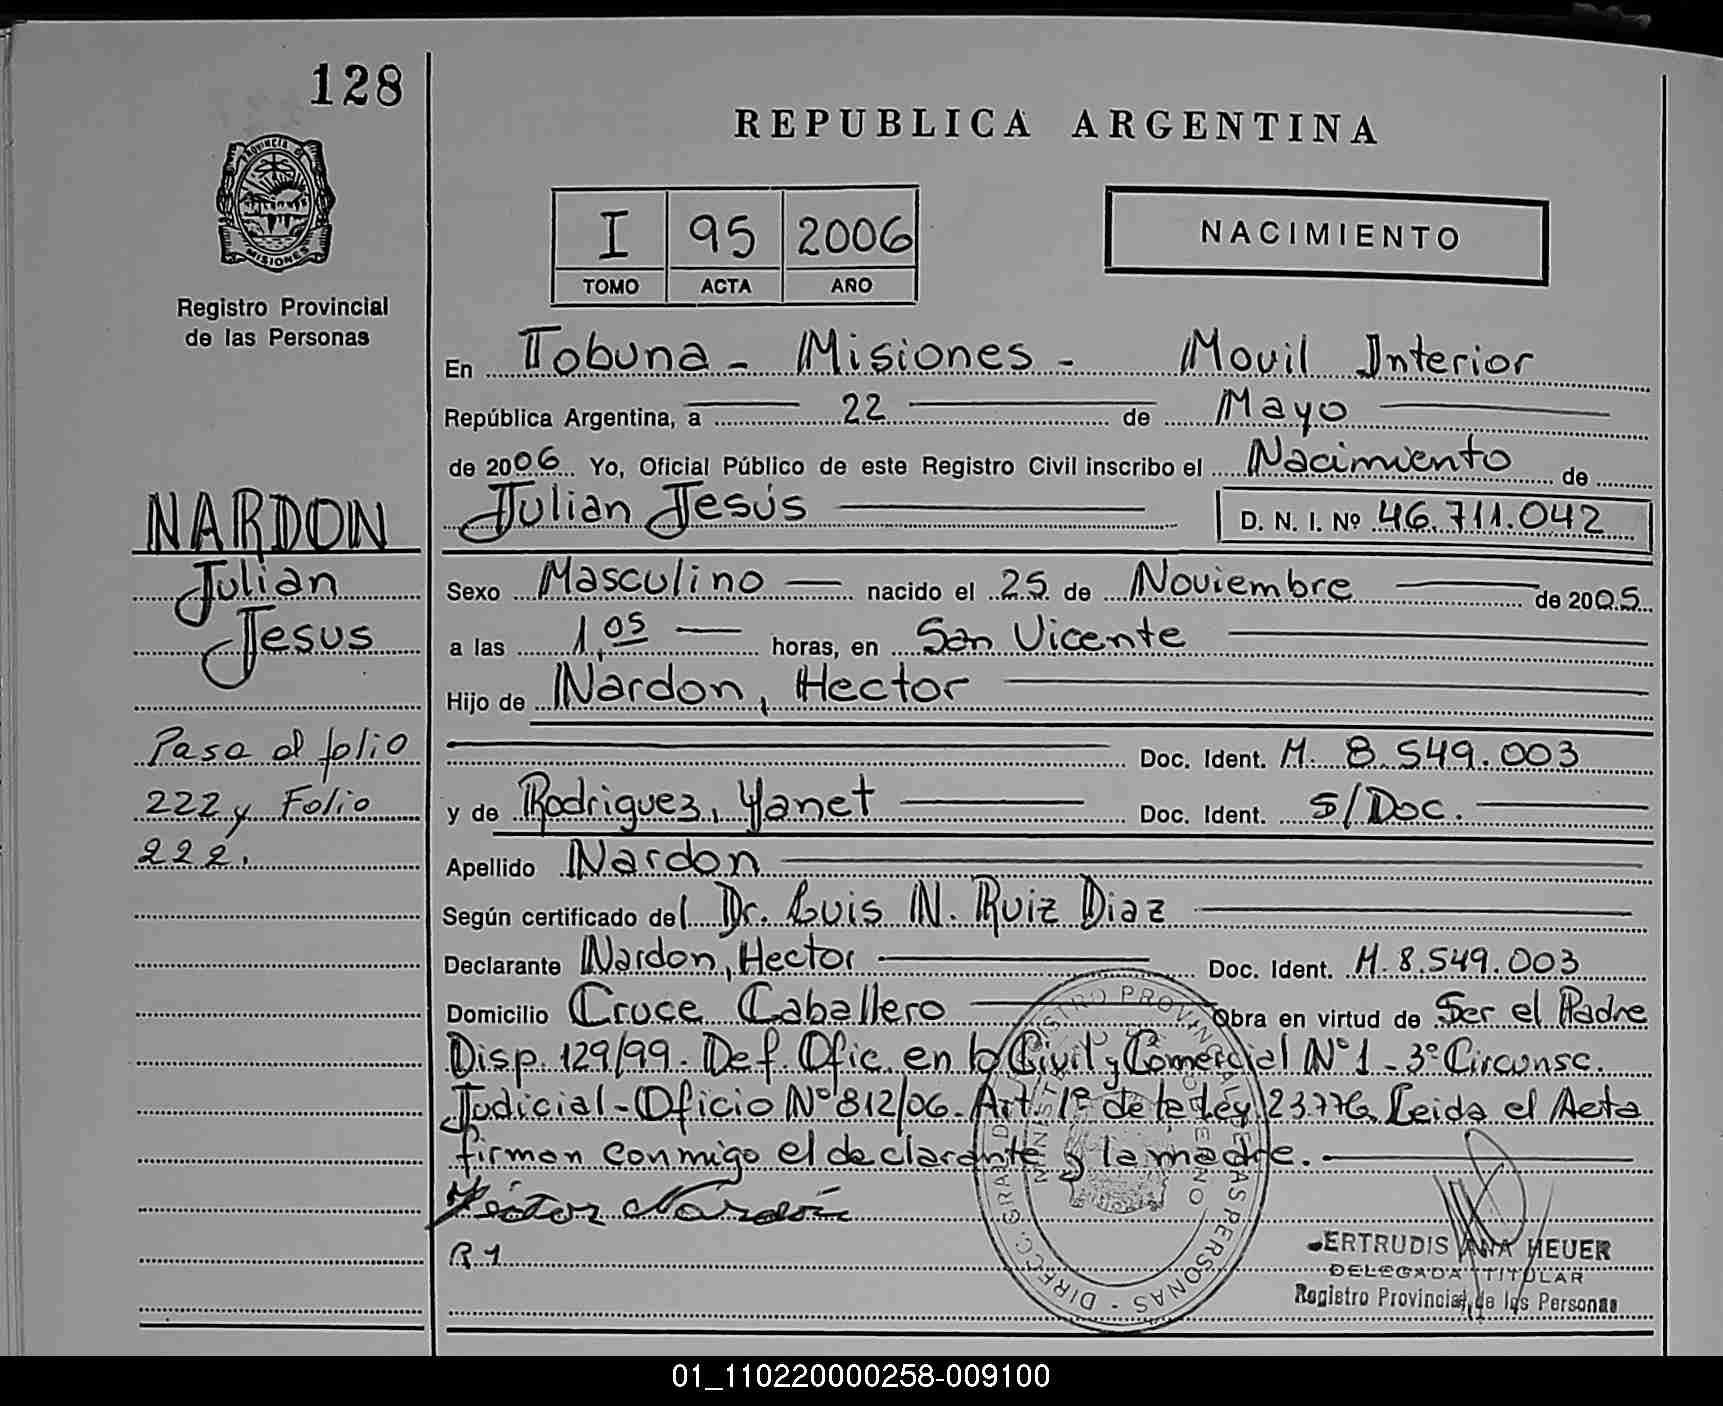 128
PROVINCIA DE
MISIONES
Registro Provincial
de las Personas
NARDON
Julian
Jesus
Pasa al folio
222 y Folio
222.
REPUBLICA ARGENTINA
I 95 2006
TOMO ACTA AÑO
NACIMIENTO
En Tobuna - Misiones - Movil Interior
República Argentina, a 22 de Mayo
de 2006 Yo, Oficial Público de este Registro Civil inscribo el Nacimiento de
Julian Jesús D. N. I. Nº 46.711.042
Sexo Masculino nacido el 25 de Noviembre de 2005
a las 1,05 horas, en San Vicente
Hijo de Nardon, Hector
Doc. Ident. M. 8.549.003
y de Rodriguez, Yanet Doc. Ident. S/Doc.
Apellido Nardon
Según certificado del Dr. Luis N. Ruiz Diaz
Declarante Nardon, Hector Doc. Ident. M. 8.549.003
Domicilio Cruce Caballero Obra en virtud de Ser el Padre
Disp. 129/99. Def. Ofic. en lo Civil y Comercial Nº 1 - 3º Circunsc.
Judicial - Oficio Nº 812/06. Art. 1º de la Ley 23.776. Leida el Acta
firman conmigo el declarante y la madre.
Hector Nardón
R 1
DIREC. GRAL. DE REGISTRO PROVINCIAL DE LAS PERSONAS
ERTRUDIS ANA HEUER
DELEGADA TITULAR
Registro Provincial de las Personas
01_110220000258-009100